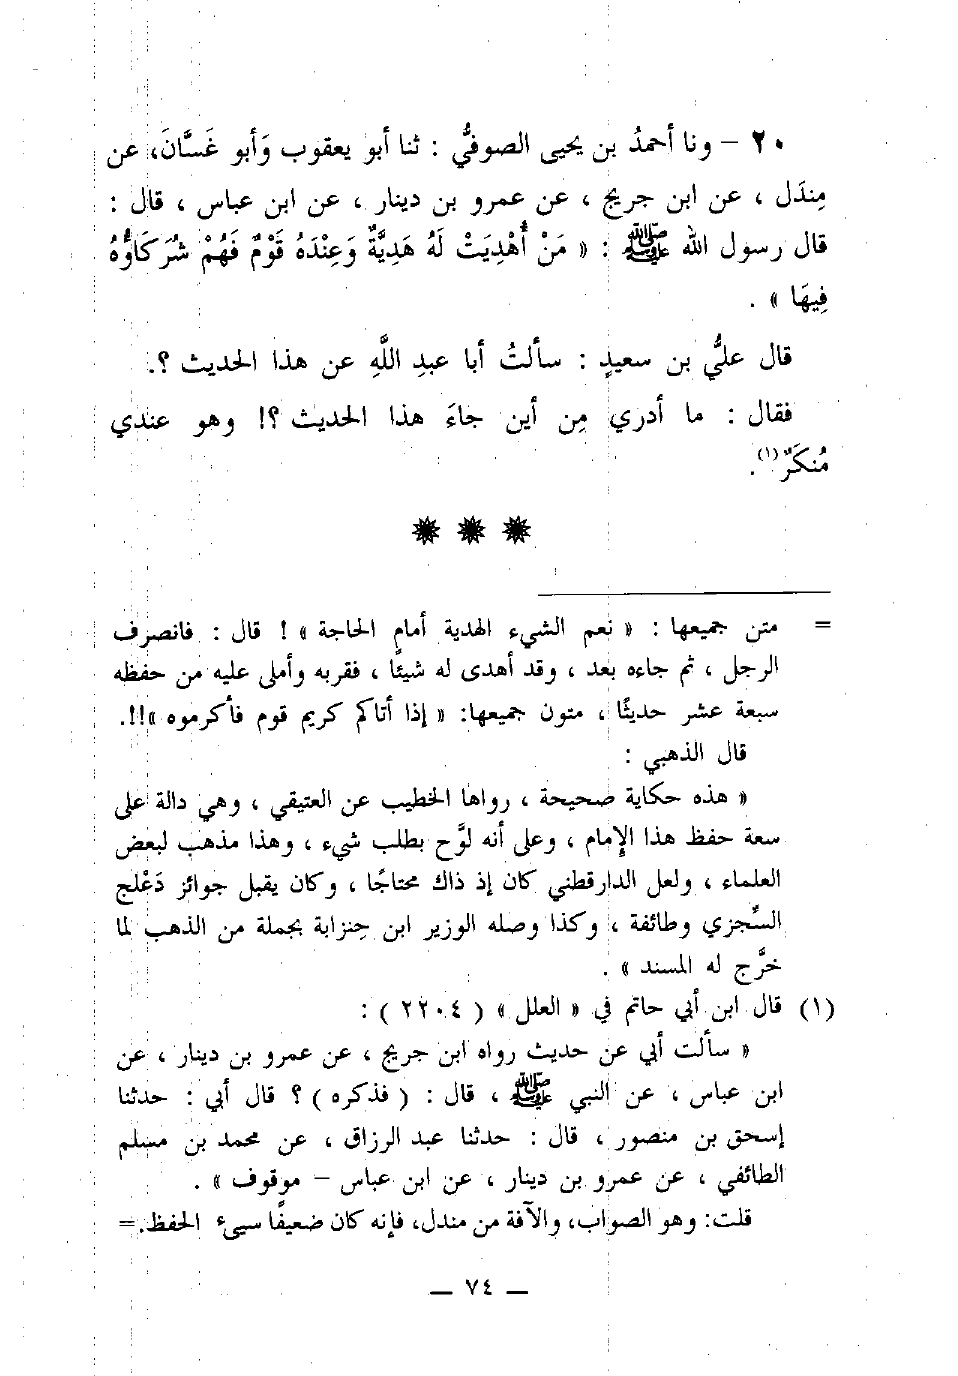 ٢٠ – ونا أحمدُ بن يحيى الصوفيُّ : ثنا أبو يعقوب وَأبو غَسَّانَ، عن
مِندَل ، عن ابن جريج ، عن عمرو بن دينار ، عن ابن عباس ، قال :
قال رسول الله ﷺ : « مَنْ أُهْدِيَتْ لَهُ هَدِيَّةٌ وَعِنْدَهُ قَوْمٌ فَهُمْ شُرَكَاؤُهُ
فِيهَا » .
قال عليُّ بن سعيدٍ : سألتُ أبا عبدِ اللَّهِ عن هذا الحديث ؟.
فقال : ما أدري مِن أين جاءَ هذا الحديث ؟! وهو عندي
مُنكَرٌ(١).
= متن جميعها : « نعم الشيء الهدية أمام الحاجة » ! قال : فانصرف
الرجل ، ثم جاءه بعد ، وقد أهدى له شيئًا ، فقربه وأملى عليه من حفظه
سبعة عشر حديثًا ، متون جميعها: « إذا أتاكم كريم قوم فأكرموه »!!.
قال الذهبي :
« هذه حكاية صحيحة ، رواها الخطيب عن العتيقي ، وهي دالة على
سعة حفظ هذا الإمام ، وعلى أنه لوَّح بطلب شيء ، وهذا مذهب لبعض
العلماء ، ولعل الدارقطني كان إذ ذاك محتاجًا ، وكان يقبل جوائز دَعْلج
السِّجزي وطائفة ، وكذا وصله الوزير ابن حِنزابة بجملة من الذهب لما
خرَّج له المسند » .
(١) قال ابن أبي حاتم في « العلل » ( ٢٢٠٤ ) :
« سألت أبي عن حديث رواه ابن جريج ، عن عمرو بن دينار ، عن
ابن عباس ، عن النبي ﷺ ، قال : ( فذكره ) ؟ قال أبي : حدثنا
إسحق بن منصور ، قال : حدثنا عبد الرزاق ، عن محمد بن مسلم
الطائفي ، عن عمرو بن دينار ، عن ابن عباس – موقوف » .
قلت: وهو الصواب، والآفة من مندل، فإنه كان ضعيفًا سيىء الحفظ.=
— ٧٤ —